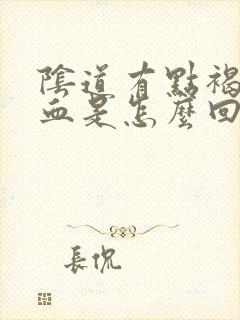 陰道有點褐
血是怎麼回
長侃